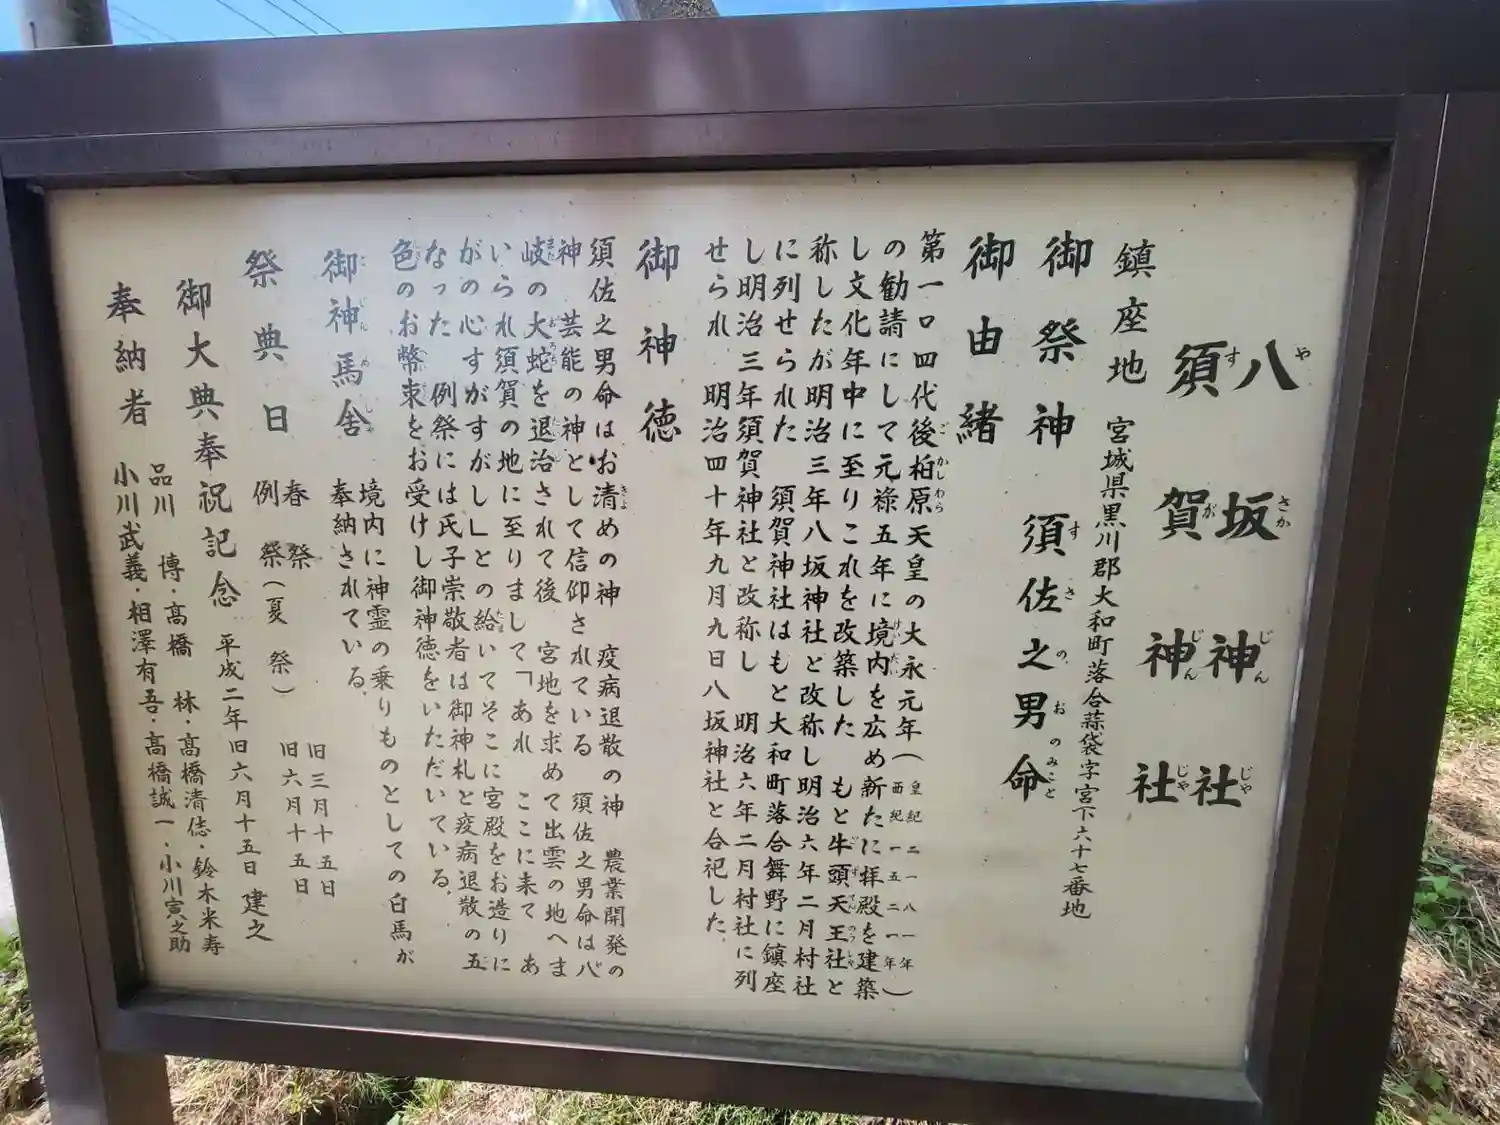 八坂神社
須賀神社
鎮座地 宮城県黒川郡大和町落合蒜袋字宮下六十七番地
御祭神 須佐之男命
御由緒
第一〇四代後柏原天皇の大永元年(皇紀二一八一年 西紀一五二一年)
の勧請にして元祿五年に境内を広め新たに拝殿を建築
し文化年中に至りこれを改築した もと牛頭天王社と
称したが明治三年八坂神社と改称し明治六年二月村社
に列せられた 須賀神社はもと大和町落合舞野に鎮座
し明治三年須賀神社と改称し 明治六年二月村社に列
せられ 明治四十年九月九日八坂神社と合祀した.
御神徳
須佐之男命はお清めの神 疫病退散の神 農業開発の
神 芸能の神として信仰されている 須佐之男命は八
岐の大蛇を退治されて後 宮地を求めて出雲の地へま
いられ須賀の地に至りまして「あれ ここに来て あ
がの心すがすがし」との給いてそこに宮殿をお造りに
なった 例祭には氏子崇敬者は御神札と疫病退散の五
色のお幣束をお受けし御神徳をいただいている.
御神馬舎 境内に神霊の乗りものとしての白馬が
奉納されている.
祭典日 春祭 旧三月十五日
例祭(夏祭) 旧六月十五日
御大典奉祝記念 平成二年旧六月十五日 建之
奉納者 品川 博・高橋 林・高橋清俧・鈴木米寿
小川武義・相澤有吾・高橋誠一・小川寅之助